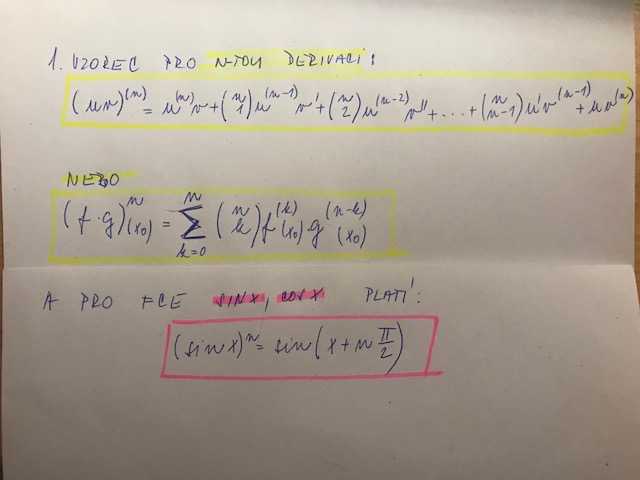 1. VZOREC PRO N-TOU DERIVACI:
(uv)^(n) = u^(n)v + (n 1)u^(n-1) v' + (n 2)u^(n-2) v'' + ... + (n n-1)u'v^(n-1) + uv^(n)
NEBO
(f·g)^n(x₀) = Σ_{k=0}^{n} (n k) f^(k)(x₀) g^(n-k)(x₀)
A PRO FCE SINX, COSX PLATÍ:
(sin x)^n = sin(x + n π/2)